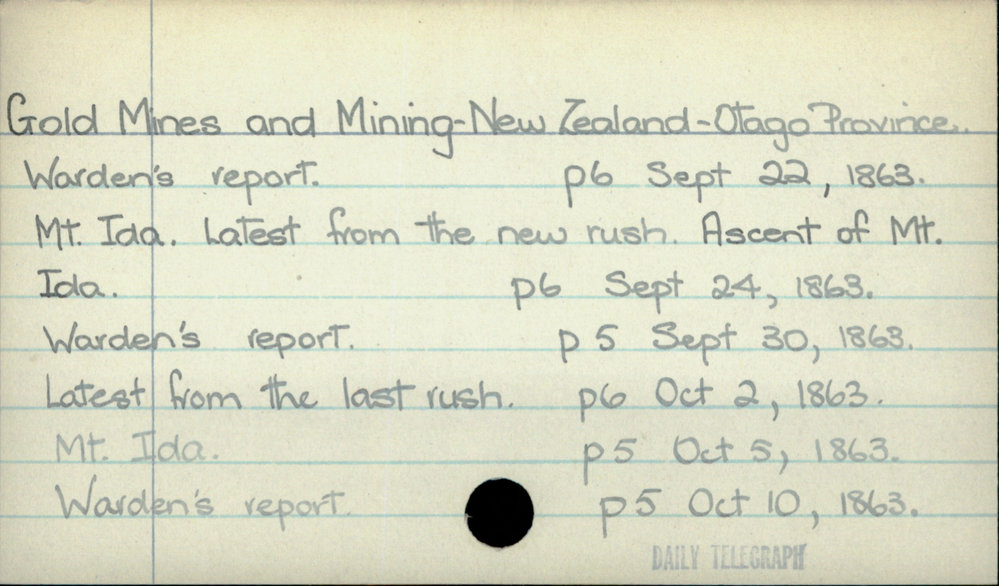 Gold Mines and Mining-New Zealand-Otago Province.
Warden's report. p6 Sept 22, 1863.
Mt. Ida. Latest from the new rush. Ascent of Mt.
Ida. p6 Sept 24, 1863.
Warden's report. p 5 Sept 30, 1863.
Latest from the last rush. p6 Oct 2, 1863.
Mt. Ida. p5 Oct 5, 1863.
Warden's report. p5 Oct 10, 1863.
DAILY TELEGRAPH